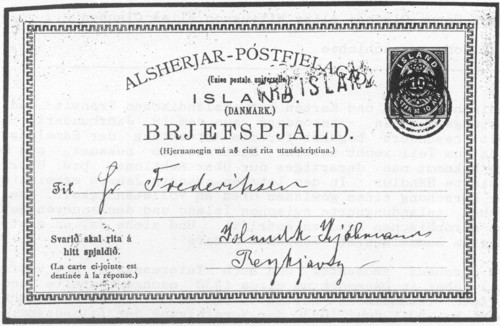 ALSHERJAR-PÓSTFJELAGIÐ
(Union postale universelle.)
FRA ISLAND
ÍSLAND.
(DANMARK.)
BRJEFSPJALD.
(Hjernamegin má að eins rita utanáskriptina.)
ISLAND
10
Til Hr Frederiksen
Islandsk Kjöbmand
Reykjavig
Svarið skal rita á
hitt spjaldið.
(La carte ci-jointe est
destinée à la réponse.)